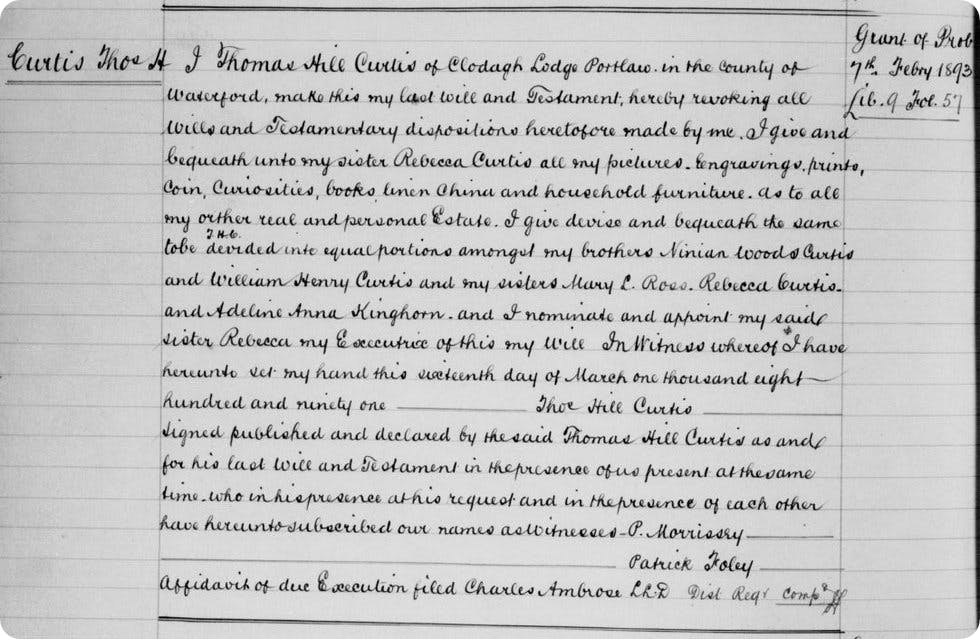 Curtis Thos H
I Thomas Hill Curtis of Clodagh Lodge Portlaw. in the county of
Waterford, make this my last will and Testament, hereby revoking all
Wills and Testamentary dispositions heretofore made by me. I give and
bequeath unto my sister Rebecca Curtis all my pictures. Engravings, prints,
Coin, Curiosities, books, linen China and household furniture. as to all
my orther real and personal Estate. I give devise and bequeath the same
T.H.C.
tobe devided into equal portions amongst my brothers Ninian Woods Curtis
and William Henry Curtis and my sisters Mary L. Ross. Rebecca Curtis.
and Adeline Anna Kinghorn. and I nominate and appoint my said
sister Rebecca my Executrix of this my Will In Witness whereof I have
hereunto set my hand this sixteenth day of March one thousand eight
hundred and ninety one Thos Hill Curtis
Signed published and declared by the said Thomas Hill Curtis as and
for his last Will and Testament in the presence of us present at the same
time. who in his presence at his request and in the presence of each other
have hereunto subscribed our names as Witnesses - P. Morrissey
Patrick Foley
Affidavit of due Execution filed Charles Ambrose LL.D Dist Regr Compd
Grant of Prob
7th Febry 1893
Lib. 9 Fol. 57